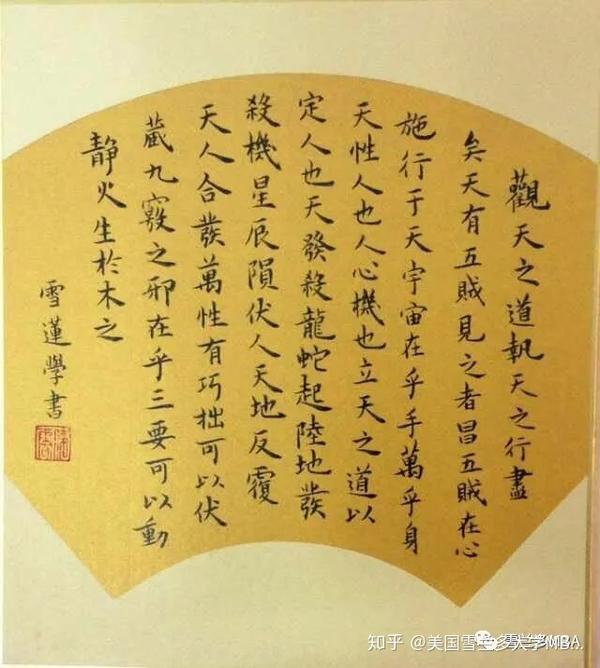 觀天之道執天之行盡
矣天有五賊見之者昌五賊在心
施行于天宇宙在乎手萬乎身
天性人也人心機也立天之道以
定人也天發殺龍蛇起陸地發
殺機星辰隕伏人天地反覆
天人合發萬性有巧拙可以伏
藏九竅之邪在乎三要可以動
靜火生於木之
雪蓮學書
知乎 @美国雪兰多大学MBA